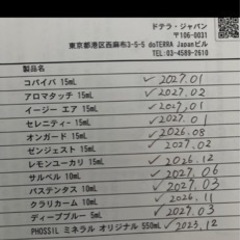 ドテラ・ジャパン
〒106-0031
東京都港区西麻布3-5-5 doTERRA Japanビル
TEL:03-4589-2610
製品名
コパイバ 15mL ✓2027.01
アロマタッチ 15mL ✓2027.02
イージー エア 15mL ✓2027.01
セレニティ- 15mL ✓2027.01
オンガード 15mL ✓2026.08
ゼンジェスト 15mL ✓2027.02
レモンユーカリ 15mL ✓2026.12
サルベル 10mL ✓2027.06
パステンタス 10mL ✓2027.03
クラリカーム 10mL ✓2026.11
ディープブルー 5mL ✓2027.03
PHOSSIL ミネラル オリジナル 550mL ✓2023.12